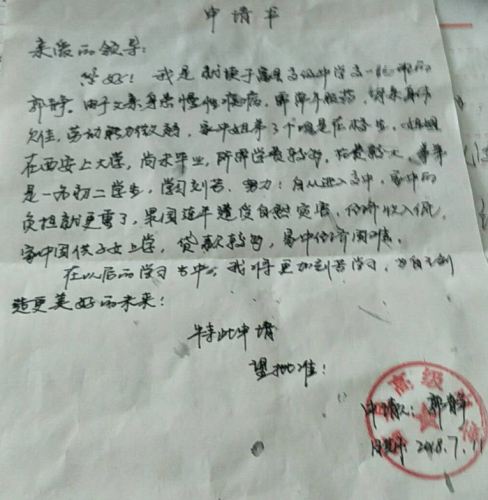 申请书
亲爱的领导:
您好! 我是就读于富县高级中学高一的
郭静。由于父亲身患慢性疾病,常年服药,母亲身体
欠佳,劳动能力微弱,家中姐弟3个均是在校生,姐姐
在西安上大学,尚未毕业,所需学费较多,花费较大,弟弟
是一名初二学生,学习刻苦、努力!自从进入高中,家中的
负担就更重了,果园连年遭受自然灾害,经济收入低,
家中因供子女上学,贷款较多,家中经济困难。
在以后的学习当中,我将更加刻苦学习,为自己创
造更美好的未来!
特此申请
望批准!
高级
申请人:郭静
日期:2018.7.11